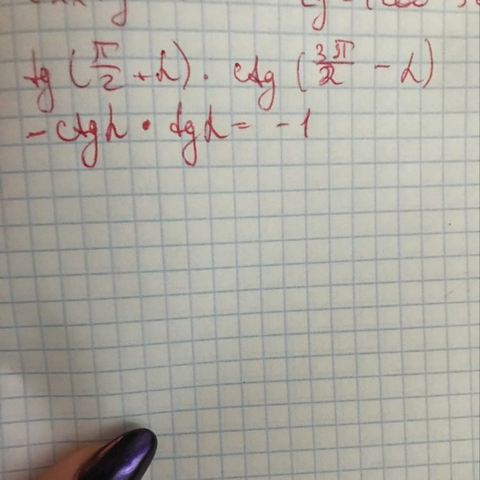 tg (π/2 + α) · ctg (3π/2 − α)
− ctgα · tgα = −1